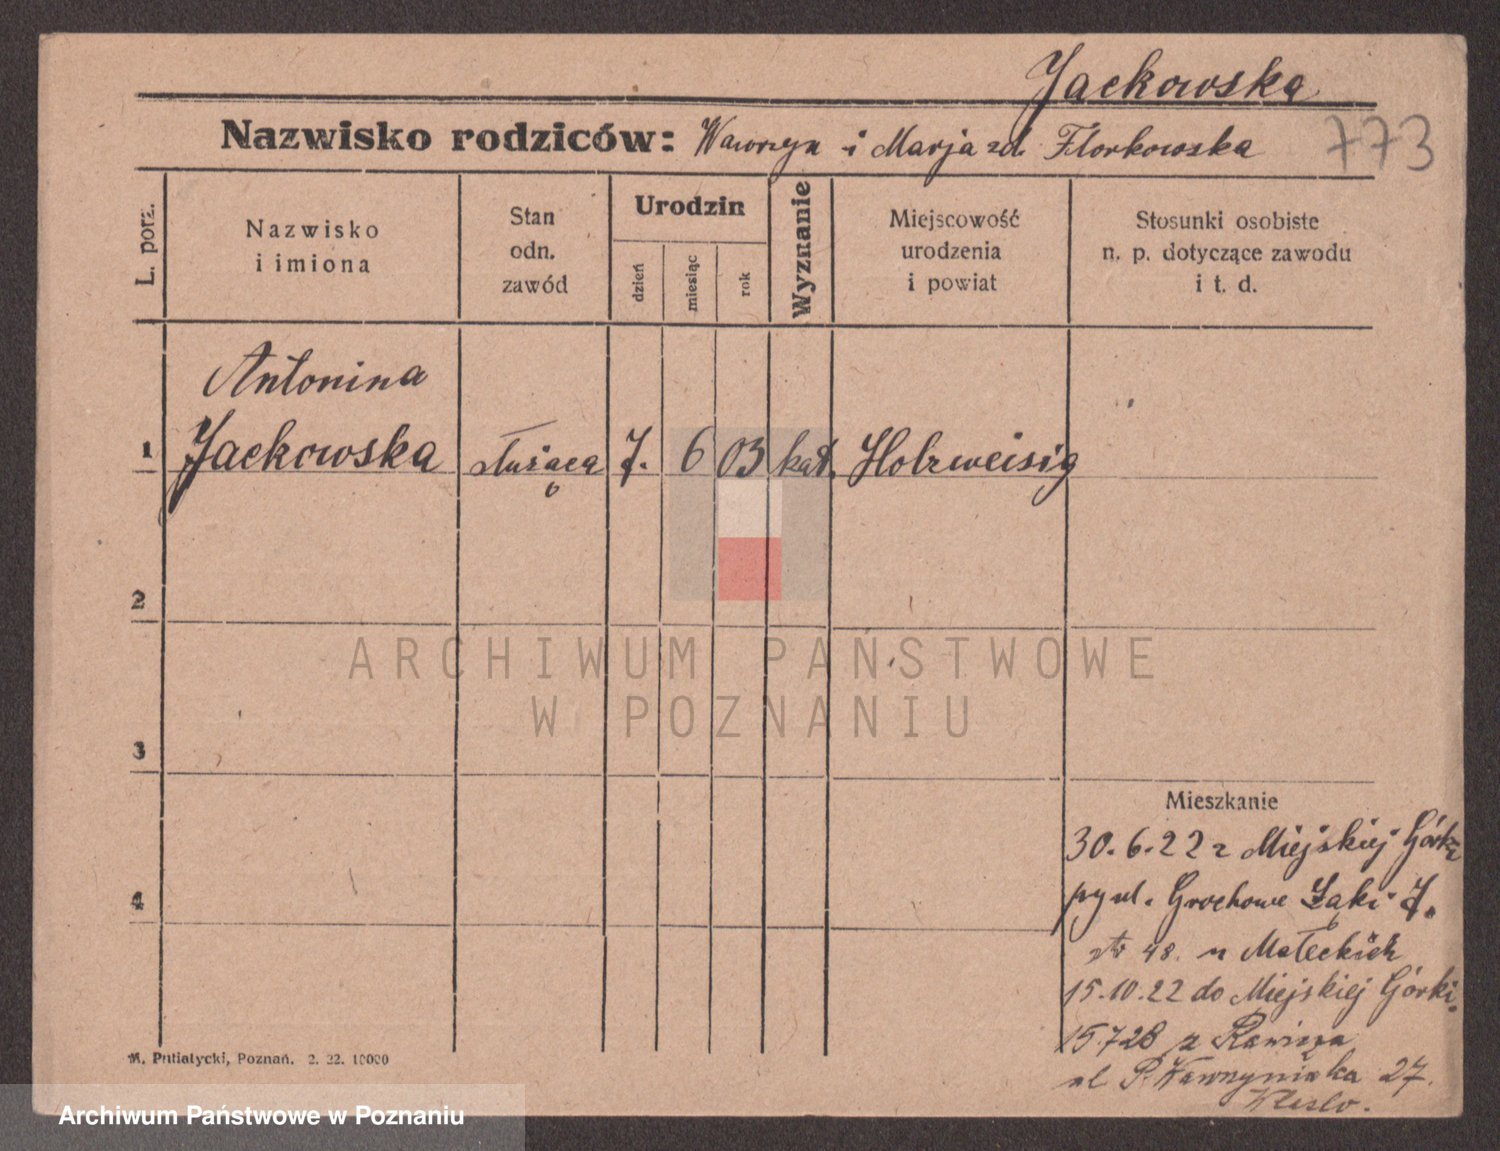 Jackowska
Nazwisko rodziców: Wawrzyn i Marja zd. Florkowska 773
L. porz.
Nazwisko
i imiona
Stan
odn.
zawód
Urodzin
dzień
miesiąc
rok
Wyznanie
Miejscowość
urodzenia
i powiat
Stosunki osobiste
n. p. dotyczące zawodu
i t. d.
Antonina
1 Jackowska służąca 7. 6 03 kat. Holzweisig
2
ARCHIWUM PAŃSTWOWE
W POZNANIU
3
Mieszkanie
30.6.22 z Miejskiej Górki
4
ul. Grochowe Łąki 7.
48. u Małeckich
15.10.22 do Miejskiej Górki.
15.7.28 z Rawicza
ul. P. Wawrzyniaka 27.
M. Putiatycki, Poznań. 2. 22. 10000
Archiwum Państwowe w Poznaniu